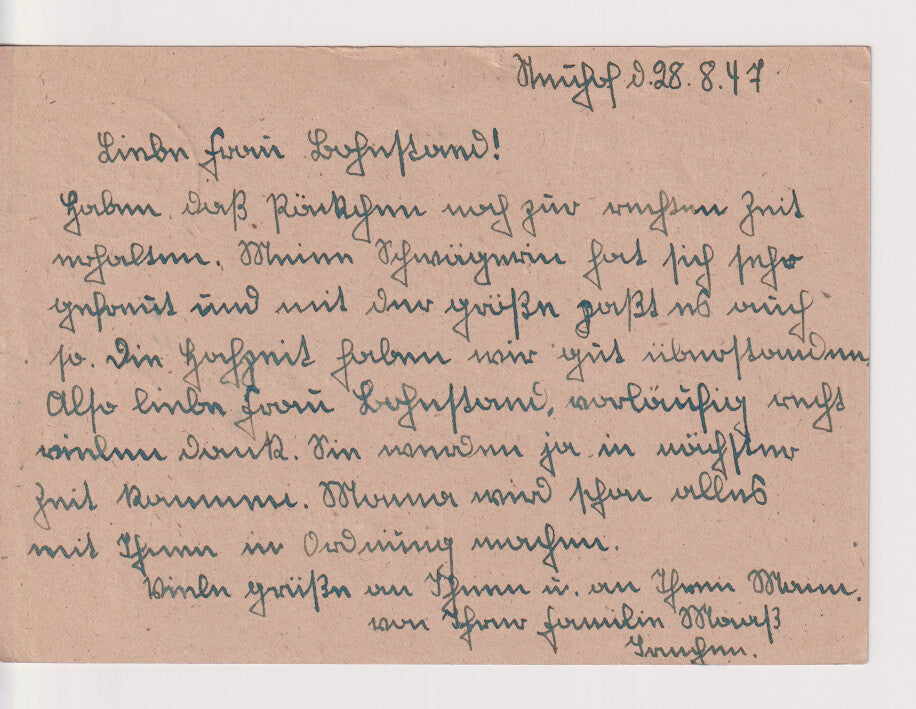 Neuhof d. 28. 8. 47
Liebe Frau Bohnstand!
Haben daß Päckchen noch zur rechten Zeit
erhalten. Meine Schwägerin hat sich sehr
gefreut und mit der größe paßt es auch
so. Die Hochzeit haben wir gut überstanden.
Also liebe Frau Bohnstand, vorläufig recht
vielen dank. Sie werden ja in nächster
Zeit kommen. Mama wird schon alles
mit Ihnen in Ordnung machen.
Viele grüße an Ihnen u. an Ihren Mann.
von Ihrer Familie Maaß